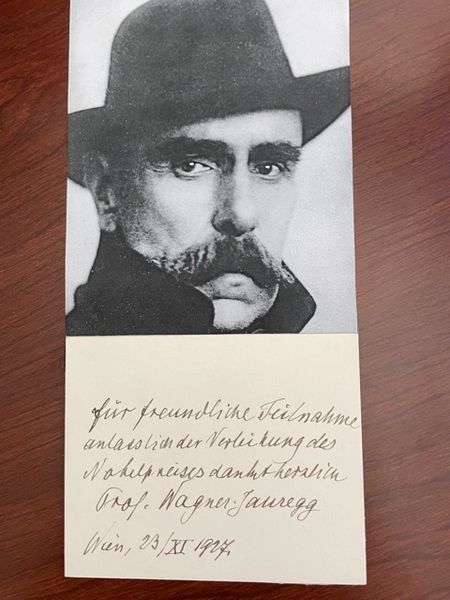 für freundliche Teilnahme
anlasslich der Verleihung des
Nobelpreises dankt herzlich
Prof. Wagner-Jauregg
Wien, 23/XI 1927.